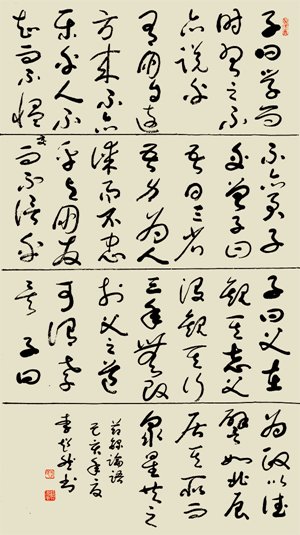 子曰学而
时习之不
亦说乎
有朋自远
方来不亦
乐乎人不
知而不愠
不亦君子
乎曾子曰
吾日三省
吾身为人
谋而不忠
乎与朋友
交而不信乎
子曰父在
观其志父
没观其行
三年無改
於父之道
可谓孝
矣子曰
为政以德
譬如北辰
居其所而
衆星共之
论语
己亥年夏
书